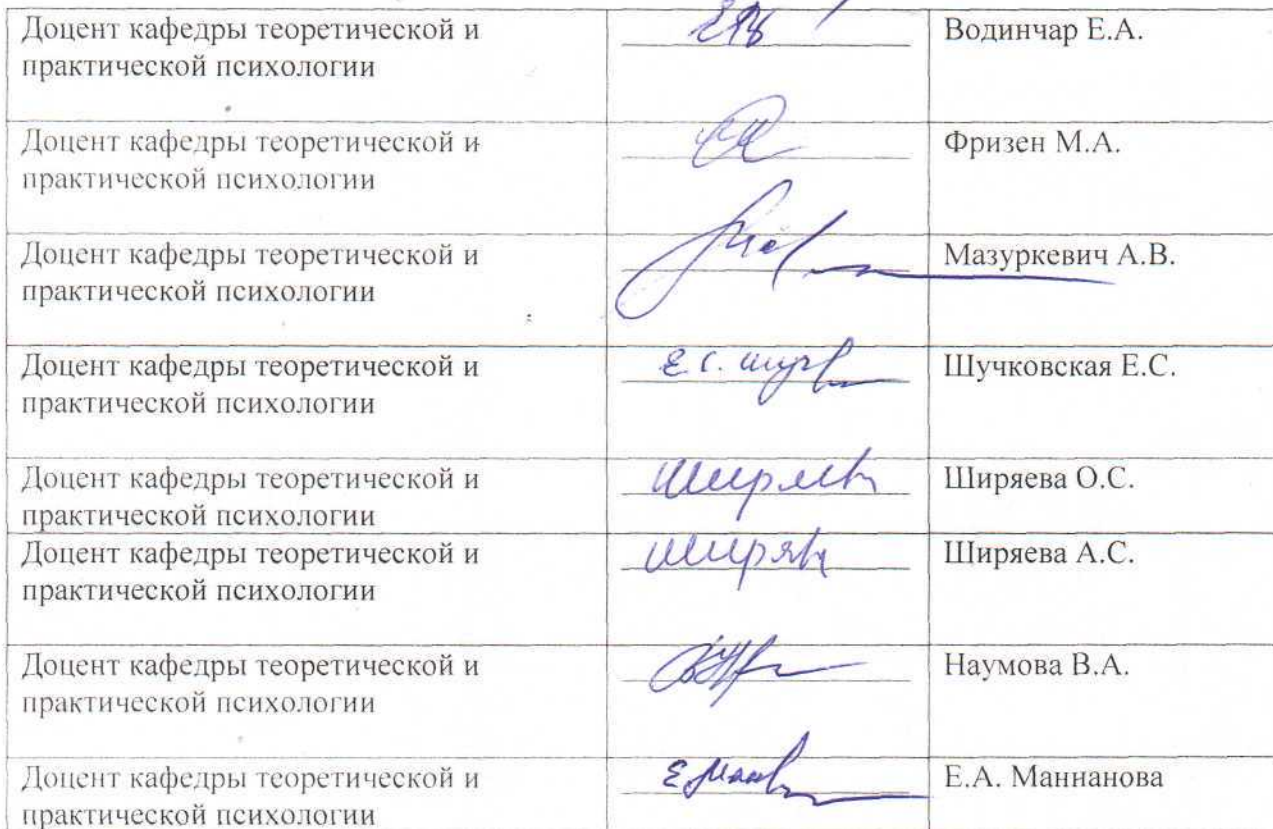 Доцент кафедры теоретической и
практической психологии
Водинчар Е.А.
Доцент кафедры теоретической и
практической психологии
Фризен М.А.
Доцент кафедры теоретической и
практической психологии
Мазуркевич А.В.
Доцент кафедры теоретической и
практической психологии
Е.С.
Шучковская Е.С.
Доцент кафедры теоретической и
практической психологии
Ширяева О.С.
Доцент кафедры теоретической и
практической психологии
Ширяева А.С.
Доцент кафедры теоретической и
практической психологии
Наумова В.А.
Доцент кафедры теоретической и
практической психологии
Е.А. Маннанова